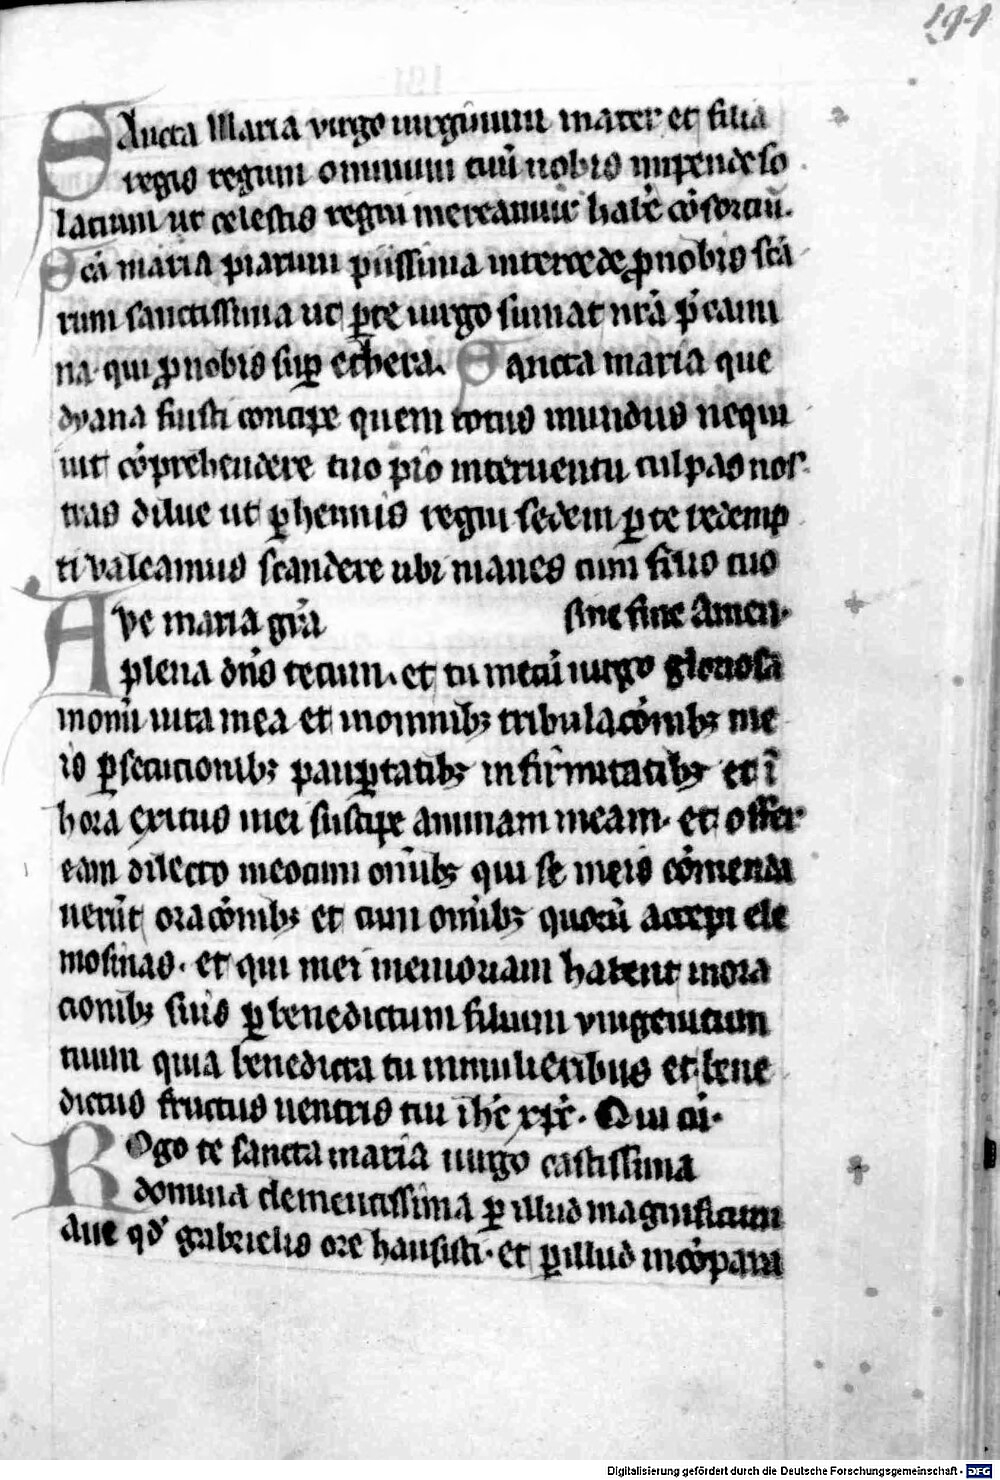 191
Sancta Maria virgo uirginum mater et filia
regis regum omnium tuū nobis impende so
lacium ut celestis regni mereamur habē cōsorciū.
Scā maria piarum piissima intercede ꝓnobis scā
rum sanctissima ut ꝑ te uirgo sumat nrā p̄cami
na qui ꝓnobis suꝑ ethera. Sancta maria que
dyana fuisti concipe quem totus mundus nequi
uit cōprehendere tuo pio interuentu culpas nos
tras dilue ut ꝑhennis regni sedem ꝑ te redemp
ti valeamus scandere ubi manes cum filio tuo
sine fine Amen.
Ave maria grā
plena dn̄s tecum. et tu mecū uirgo gloriosa
in om̄i uita mea et in omnibꝫ tribulacōnibꝫ me
is ꝑsecucionibꝫ pauꝑtatibꝫ infirmitatibꝫ et ī
hora exitus mei suscipe animam meam. et offer
eam dilecto meo cum om̄ibꝫ qui se meis cōmenda
uerūt oracōnibꝫ et cum om̄ibꝫ quorū accepi ele
mosinas. et qui mei memoriam habent in ora
cionibꝫ suis ꝑ benedictum filium vnigenitum
tuum quia benedicta tu in mulieribus et bene
dictus fructus uentris tui ihc̄ xp̄c. Qui cū.
Rogo te sancta maria uirgo castissima
domina clementissima ꝑ illud magnificum
aue qd' gabrielis ore hausisti. et ꝑ illud incōpara
Digitalisierung gefördert durch die Deutsche Forschungsgemeinschaft - DFG